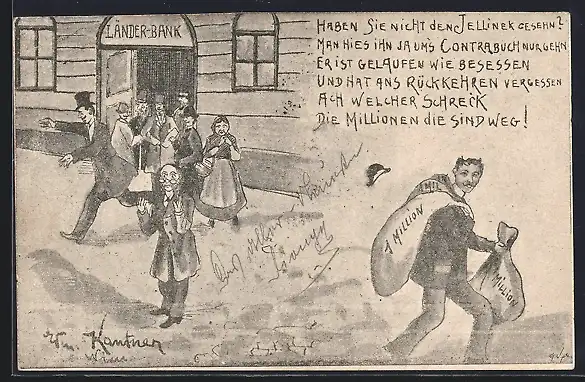 LÄNDER-BANK
HABEN SIE NICHT DEN JELLINEK GESEHN?
MAN HIES IHN JA UM'S CONTRABUCH NUR GEHN
ER IST GELAUFEN WIE BESESSEN
UND HAT ANS RÜCKKEHREN VERGESSEN
ACH WELCHER SCHRECK
DIE MILLIONEN DIE SIND WEG!
1 MILLION
MILLION
Kantner
Wien